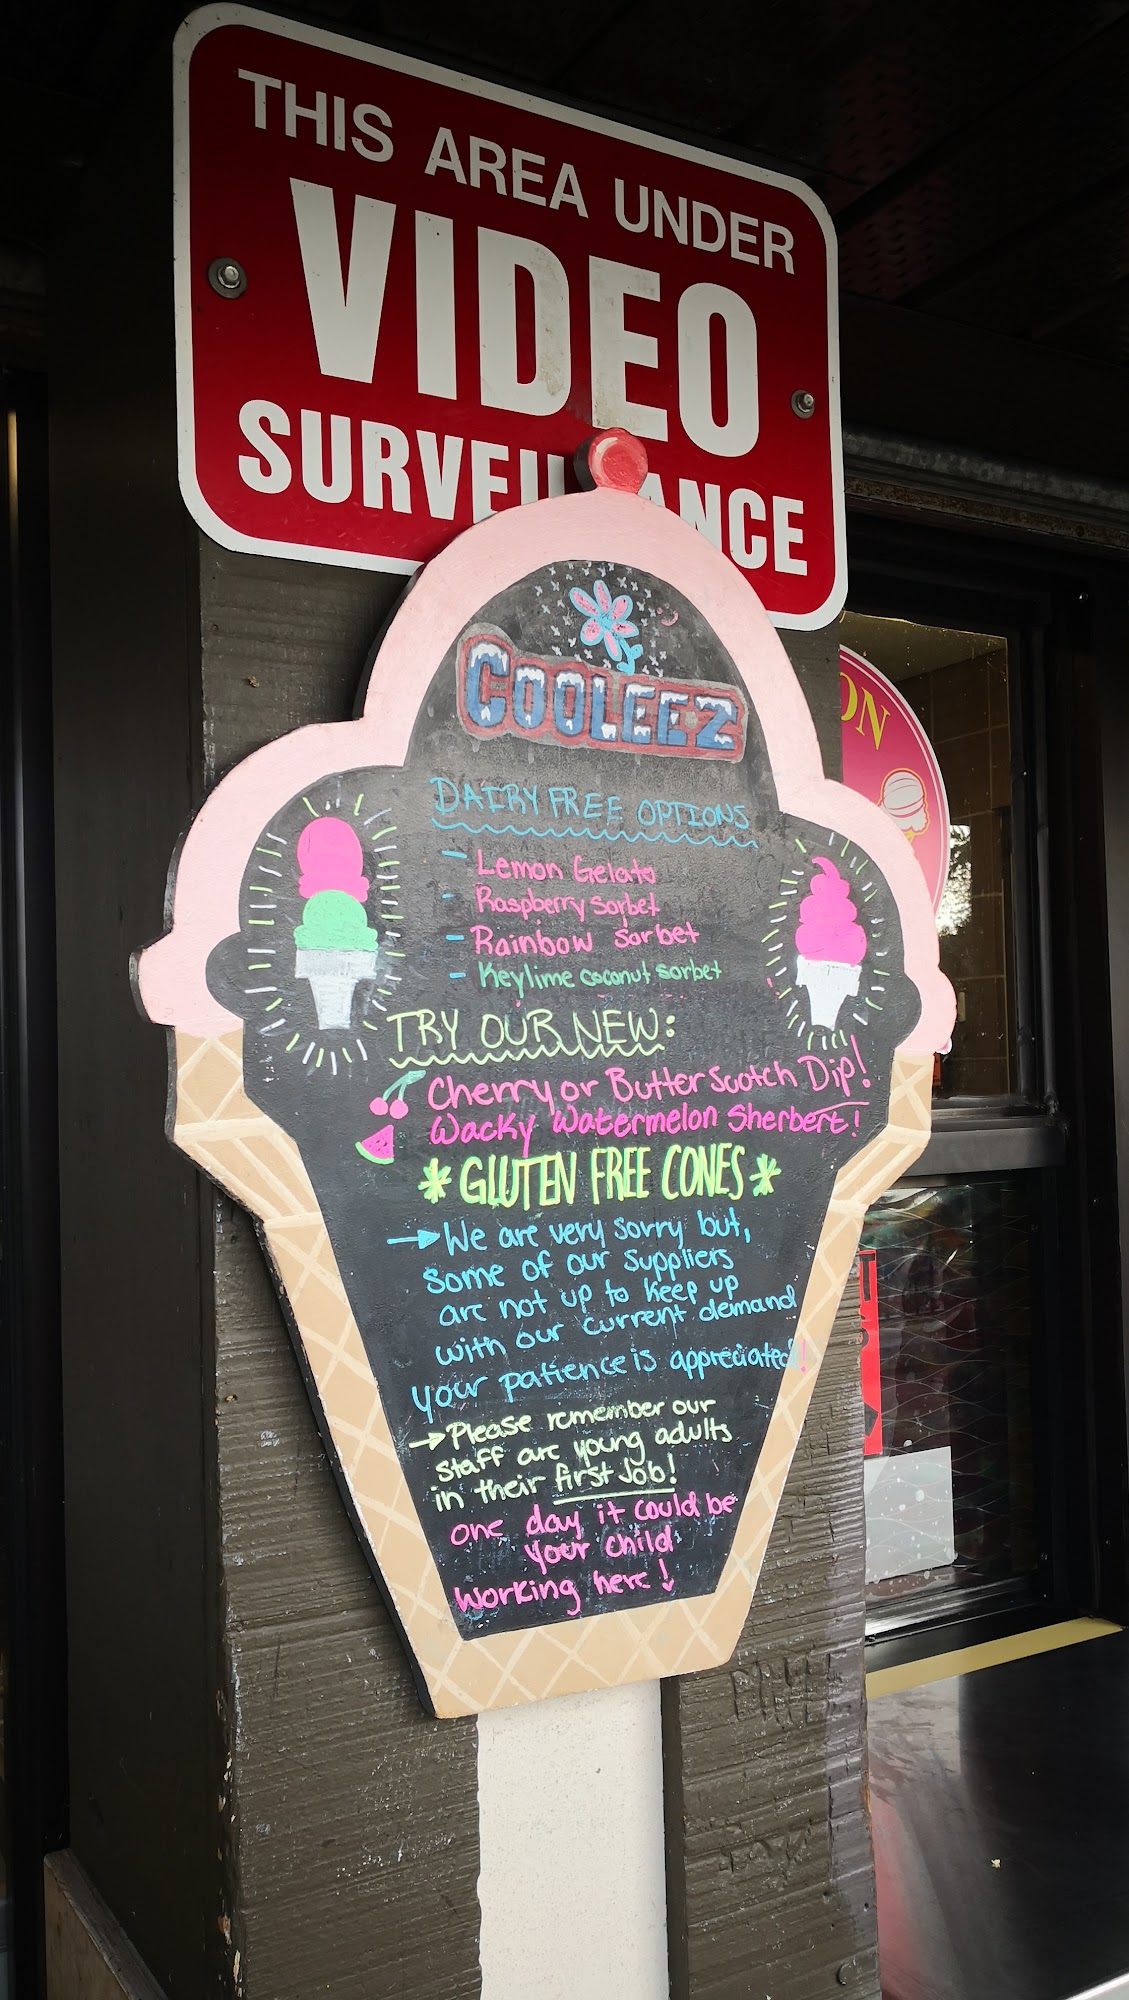 THIS AREA UNDER
VIDEO
SURVEILLANCE
COOLEEZ
DAIRY FREE OPTIONS
- Lemon Gelato
- Raspberry sorbet
- Rainbow sorbet
- Keylime coconut sorbet
TRY OUR NEW:
Cherry or Butter Scotch Dip!
Wacky Watermelon Sherbert!
* GLUTEN FREE CONES *
→ We are very sorry but,
some of our suppliers
are not up to keep up
with our current demand
your patience is appreciated!
→ Please remember our
staff are young adults
in their first Job!
one day it could be
your child
working here!
ON